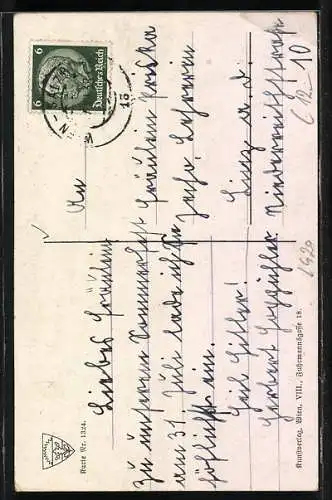 Deutsches Reich
6
6
WIEN
An
Fräulein
Lehrerin
Linz a. d.
Liebes Fräulein
Zu unserem Sommerfest
am 31 Juli lade ich Sie
höflichst ein.
Heil Hitler!
Herbert
Karte Nr. 1324.
Kunstverlag, Wien, VIII., Fuhrmannsgasse 18.
C 12-10